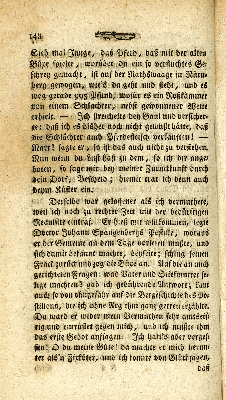 142
Sieh mal Junge, das Pferd, das mit der alten
Büxe spielte, worüber du ein so verfluchtes Ge-
schrey gemacht, ist auf der Rathswaage in Nürn-
berg gewogen, wie's da geht und steht, und es
wog gerade 995 Pfund, wofür es ein Roßkamm
von einem Schlachter, nebst gewonnener Wette
erhielt. — Ich streichelte den Gaul und versicher-
te: daß ich es bisher noch nicht gewußt hätte, daß
die Schlächter auch Pferdefleisch verkauften! —
Narr! sagte er, so ist das auch nicht zu verstehen.
Men wenn du Lust hast zu dem, so ich dir ange-
boten, so frage mer bey meiner Zurückkunft durch
dein Dorf, Bescheid; hernier mat ich denn auch
deyn Küster ein.
Derselbe war gelassener als ich vermuthete,
weil ich noch zu rechter Zeit wie der heutliche
Recruiter eintraf. Er hieß mir willkommen, legte
Doctor Johann Spangenbergs Postille, woraus
er der Gemeine an dem Tage vorlesen mußte, und
sich damit bekannt machte, beyseite; schlug seinen
Frack zurück und zog die Büxe an. Auf die an mich
gerichteten Fragen: was Vater und Stiefmutter se-
lige machten? gab ich gebührende Antwort; kam
auch so von ohngefähr auf die Bergschichte des Po-
stillons, die ich ohne Arg ihm ganz getreu erzählte.
Da ward er wider mein Vermuthen sehr unwirsch
eifrig und entrüstet gegen mich, und ich mußte ihm
das erste Gebot aufsagen: Ich hatt's aber verges-
sen! O du meine Güte! da machte er mich herun-
ter als'n Ferkuter, und ich konnte von Glück sagen,
daß